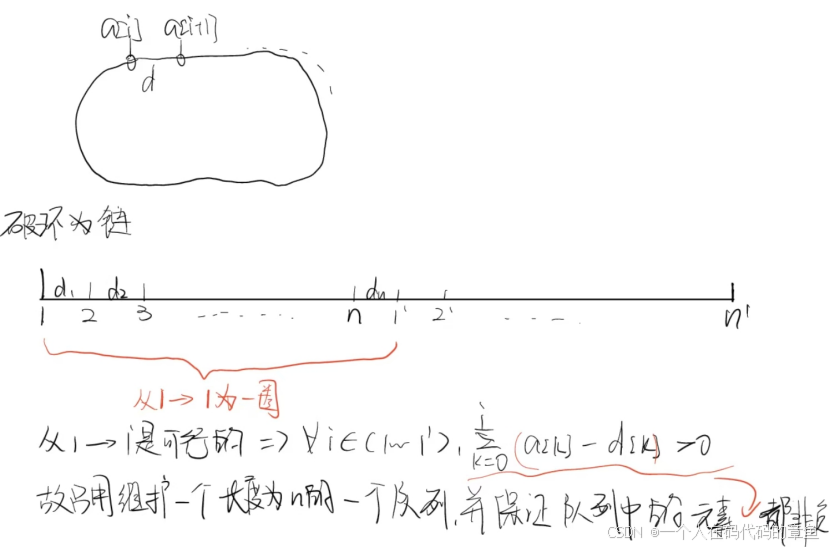 a[i] a[i+1]
d
破环为链
d₁ d₂ dn
1 2 3 ........ n 1' 2' .... n'
从1→1为一圈
从1→i是可行的 => ∀i∈(1~1'), \sum_{k=0}^{i} (a[k] - d[k]) >0
故只用维护一个长度为n的一个队列,并保证队列中的元素 都非负
CSDN @一个人在码代码的章鱼